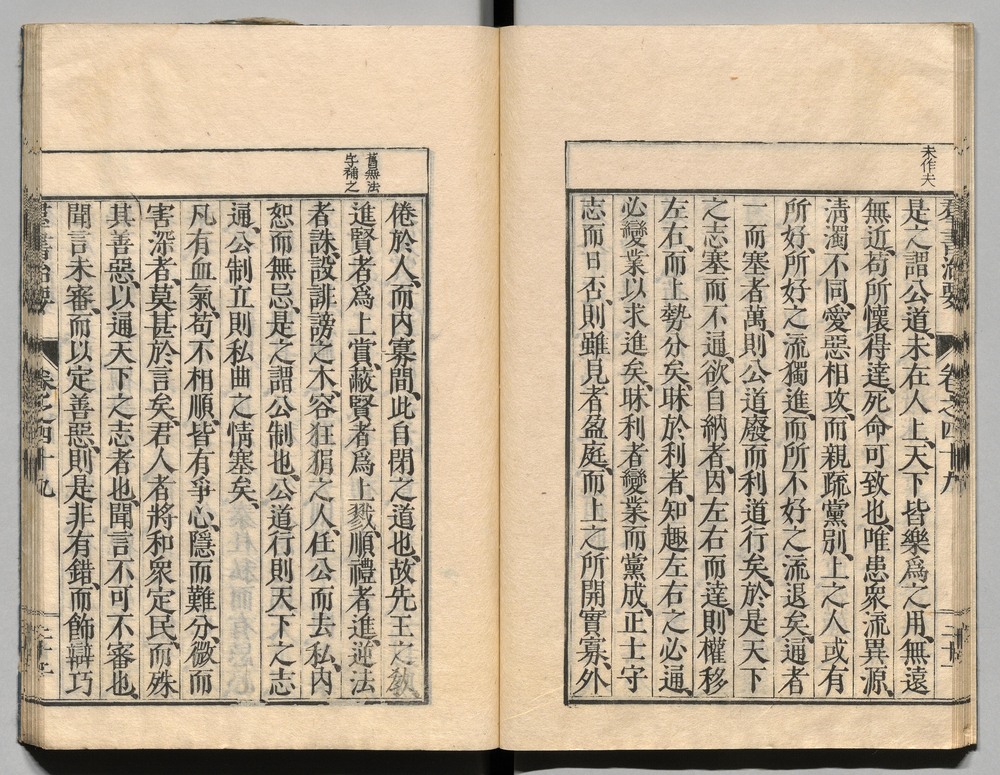 未作夫
群書治要 卷之四十九 二十二
是之謂公道、未在人上、天下皆樂爲之用、無遠
無近、苟所懷得達、死命可致也、唯患衆流異源、
淸濁不同、愛惡相攻、而親疏黨別、上之人或有
所好、所好之流獨進、而所不好之流退矣、通者
一而塞者萬、則公道廢而利道行矣、於是天下
之志塞而不通、欲自納者、因左右而達、則權移
左右、而上勢分矣、昧於利者、知趣左右之必通、
必變業以求進矣、昧利者變業而黨成、正士守
志而日否、則雖見者盈庭、而上之所聞實寡、外
舊無法
字補之
倦於人、而内寡聞、此自閉之道也、故先王之敎
進賢者爲上賞、蔽賢者爲上戮、順禮者進、逆法
者誅、設誹謗之木、容狂狷之人、任公而去私、内
恕而無忌、是之謂公制也、公道行則天下之志
通、公制立則私曲之情塞矣、
凡有血氣、苟不相順、皆有爭心、隱而難分、微而
害深者、莫甚於言矣、君人者將和衆定民、而殊
其善惡、以通天下之志者也、聞言不可不審也、
聞言未審、而以定善惡、則是非有錯、而飾辯巧
群書治要 卷之四十九